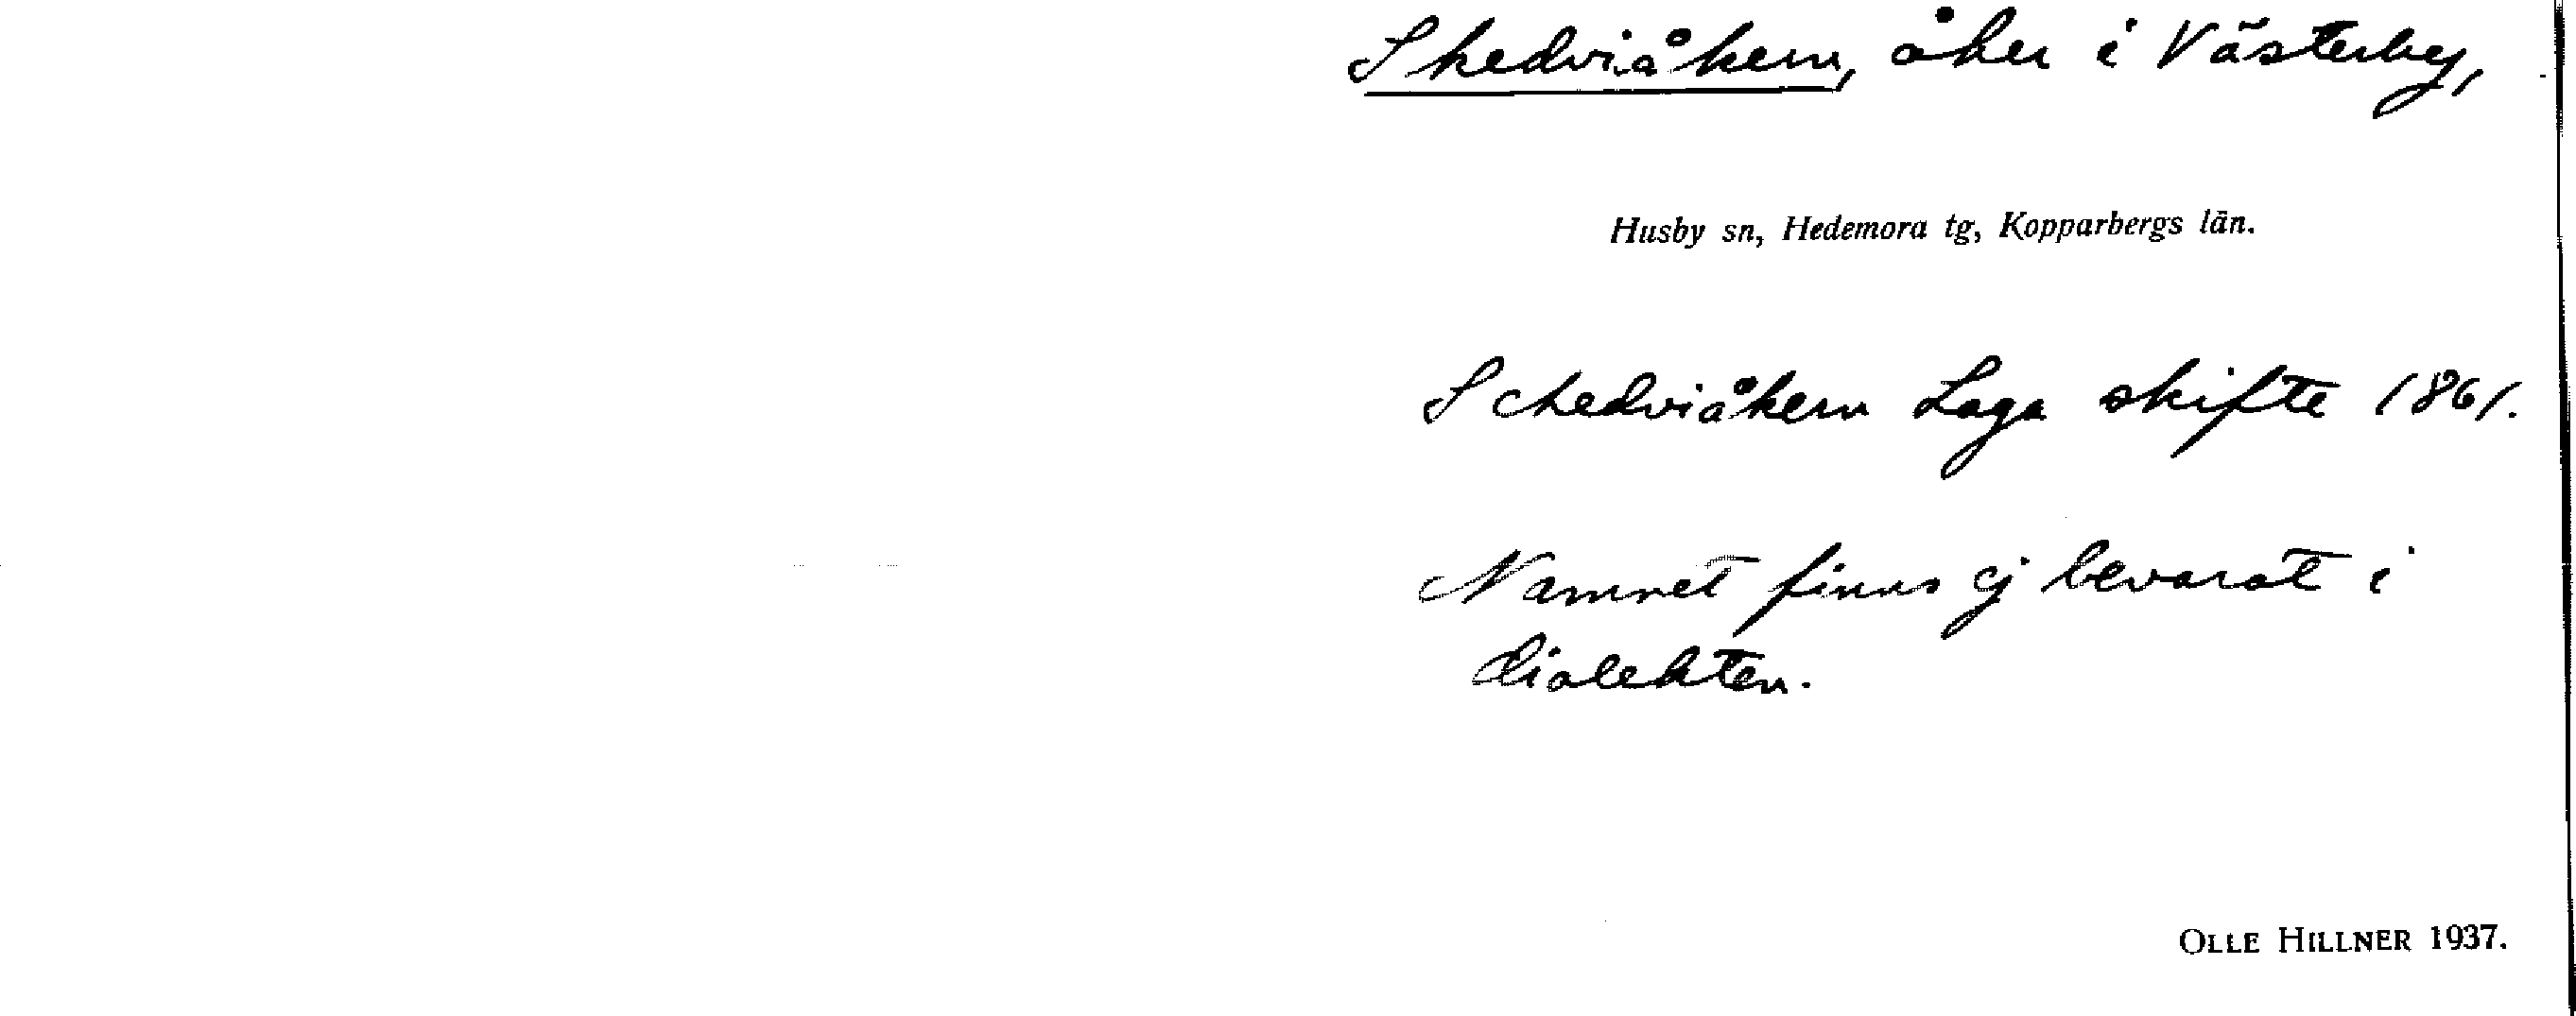 Skedviåkern, åker i Västerby,
Husby sn, Hedemora tg, Kopparbergs län.
Schedviåkern Laga skifte 1861.
Namnet finns ej bevarat i
dialekten.
OLLE HILLNER 1937.